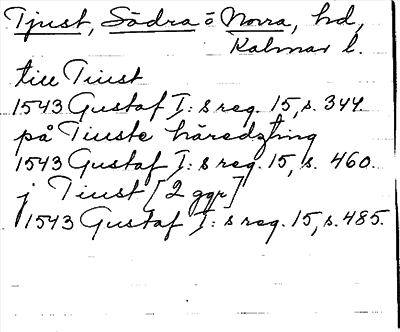 Tjust, Södra o Norra, hd,
Kalmar l.
till Tiust
1543 Gustaf I:s reg. 15, s. 344.
på Tiuste häredzting
1543 Gustaf I:s reg. 15, s. 460.
j Tiust [2 ggr]
1543 Gustaf I:s reg. 15, s. 485.